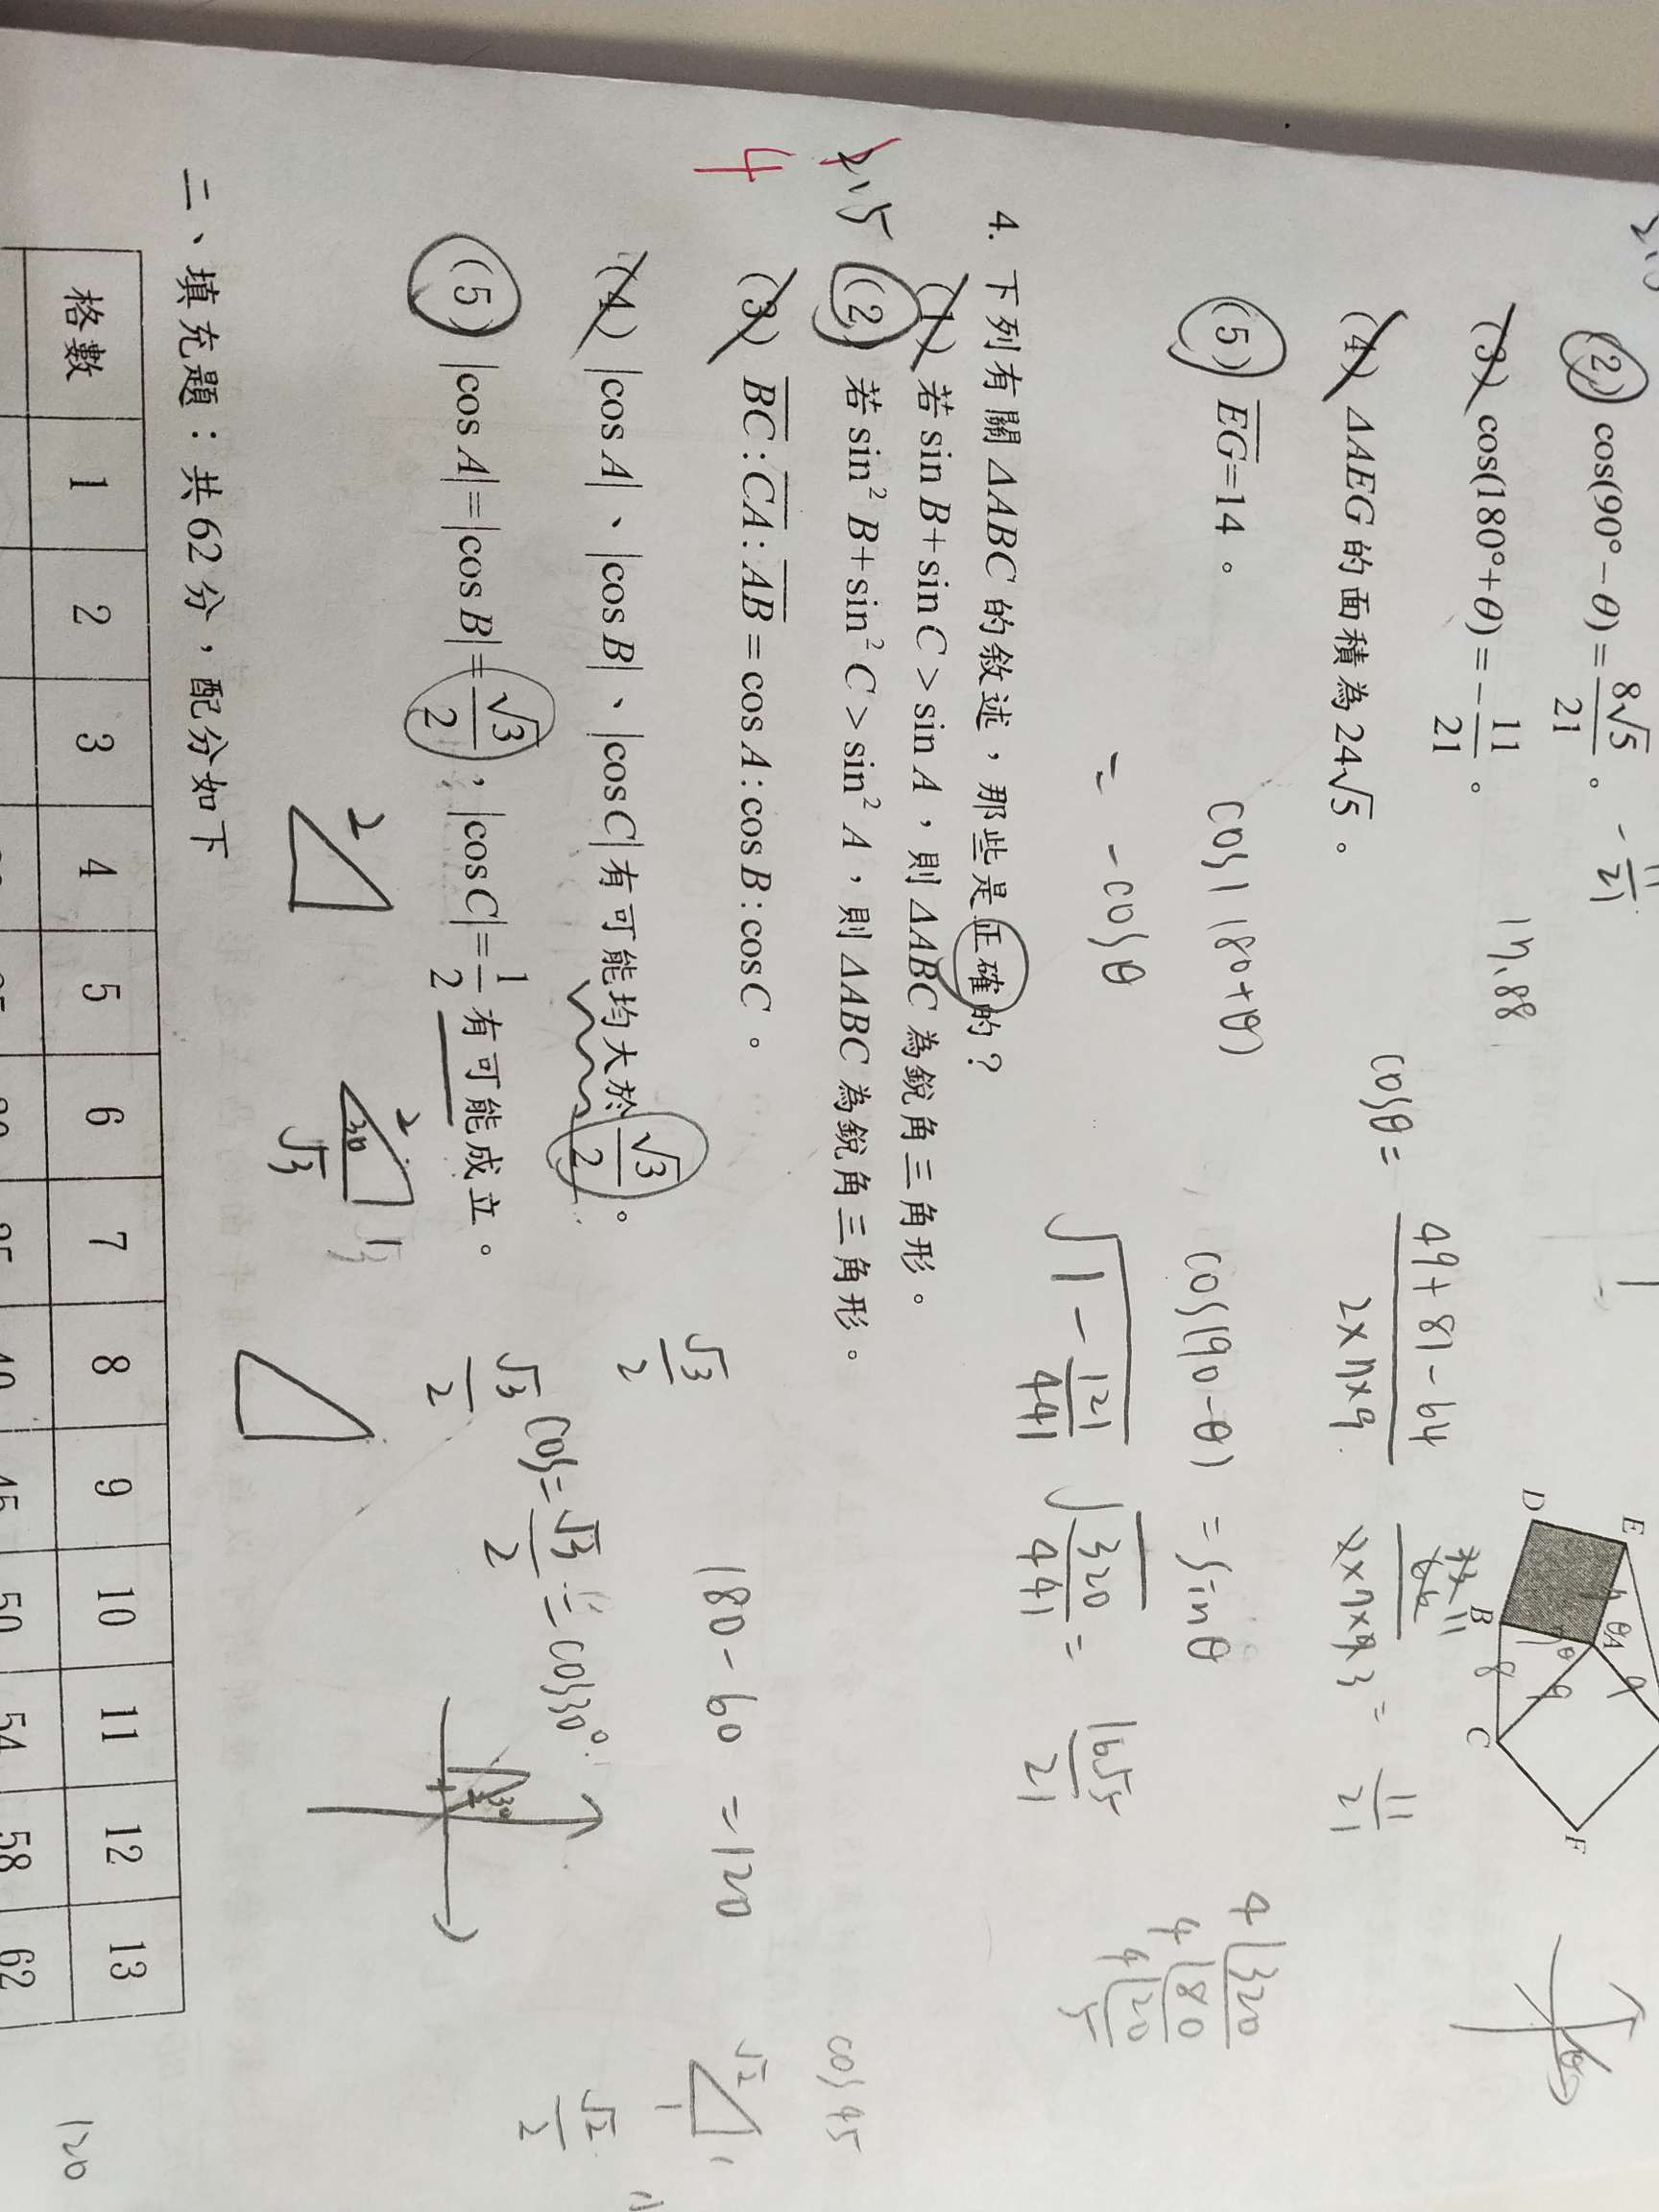 (2) cos(90°−θ)=8√5/21。 −11/21
(3) cos(180°+θ)=−11/21。 17.88
(4) ΔAEG 的面積為24√5。
(5) EG=14。
cosθ= 49+81−64/2×7×9 = 11/21
D E A B C F
θ θ 7 9 9 8
cos(180+θ)
= −cosθ
cos(90−θ) = sinθ
√1−121/441 √320/441 = 16√5/21
4 320
4 80
4 20
5
4. 下列有關ΔABC的敘述，那些是正確的？
(1) 若sin B+sin C>sin A，則ΔABC為銳角三角形。
2,5 (2) 若sin² B+sin² C>sin² A，則ΔABC為銳角三角形。
4 (3) BC:CA:AB=cos A:cos B:cos C。
(4) |cos A|、|cos B|、|cos C|有可能均大於√3/2。
(5) |cos A|=|cos B|=√3/2，|cos C|=1/2有可能成立。
√3/2
180−60=120
√3/2 cos=√3/2=cos30°
2
2 30 √3 1
cos 45
√2 1 1
√2/2
二、填充題：共62分，配分如下
格數 1 2 3 4 5 6 7 8 9 10 11 12 13
50 54 58 62
120